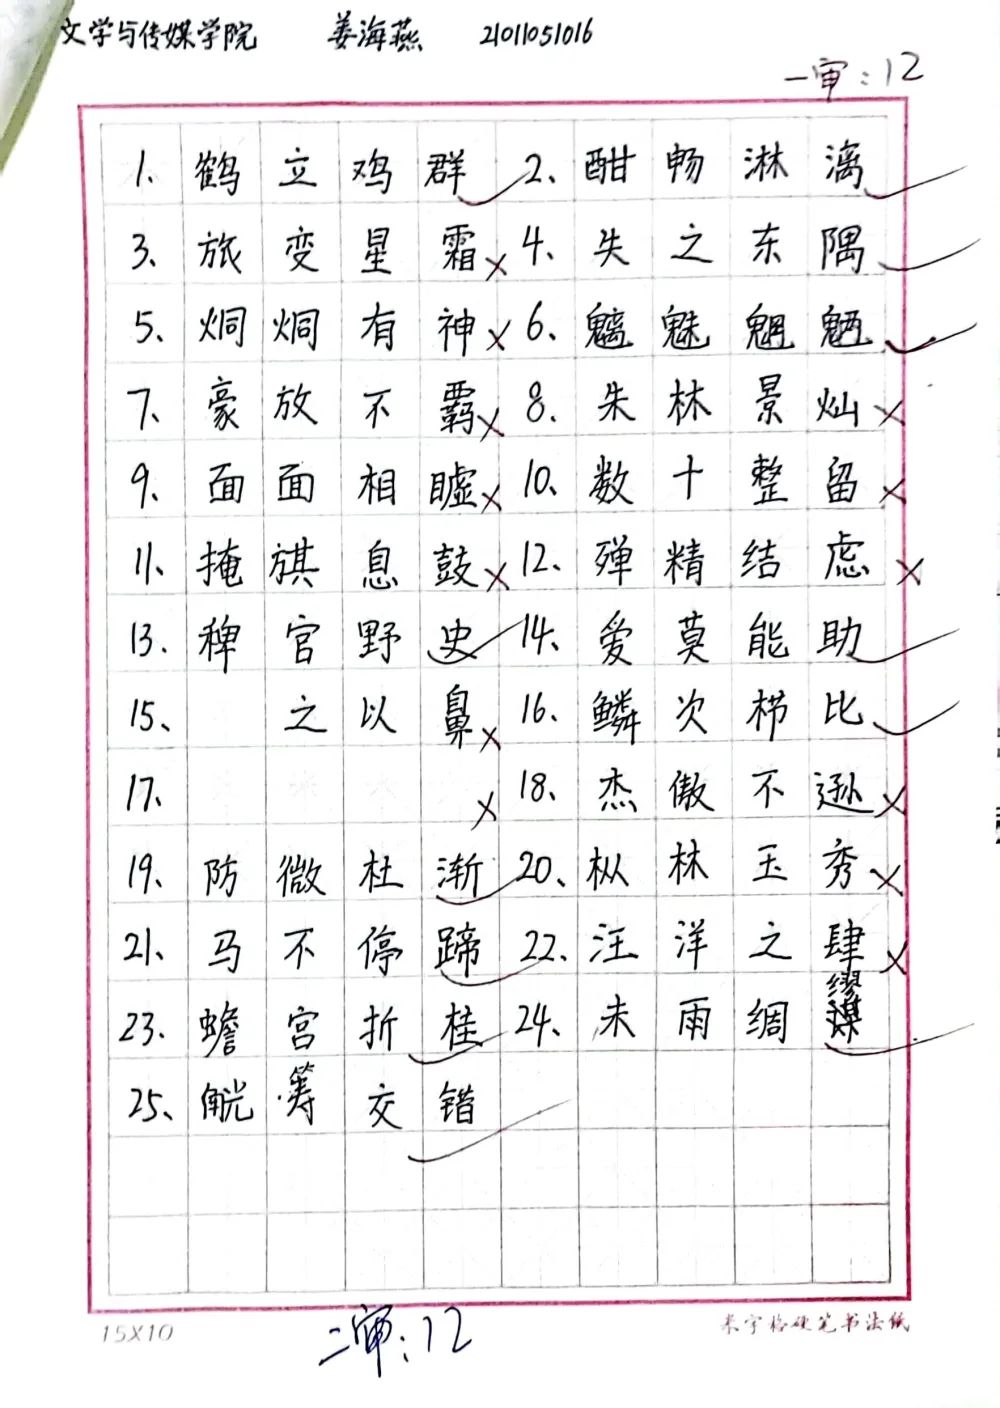 文学与传媒学院 姜海燕 21011051016
一审：12
1、鹤立鸡群 2、酣畅淋漓
3、旅变星霜 4、失之东隅
5、炯炯有神 6、魑魅魍魉
7、豪放不羁 8、朱林景灿
9、面面相嘘 10、数十整留
11、掩旗息鼓 12、殚精结虑
13、稗官野史 14、爱莫能助
15、之以鼻 16、鳞次栉比
17、 18、杰傲不逊
19、防微杜渐 20、枞林玉秀
21、马不停蹄 22、汪洋之肆
23、蟾宫折桂 24、未雨绸缪
25、觥筹交错
15X10 米字格硬笔书法纸
二审：12